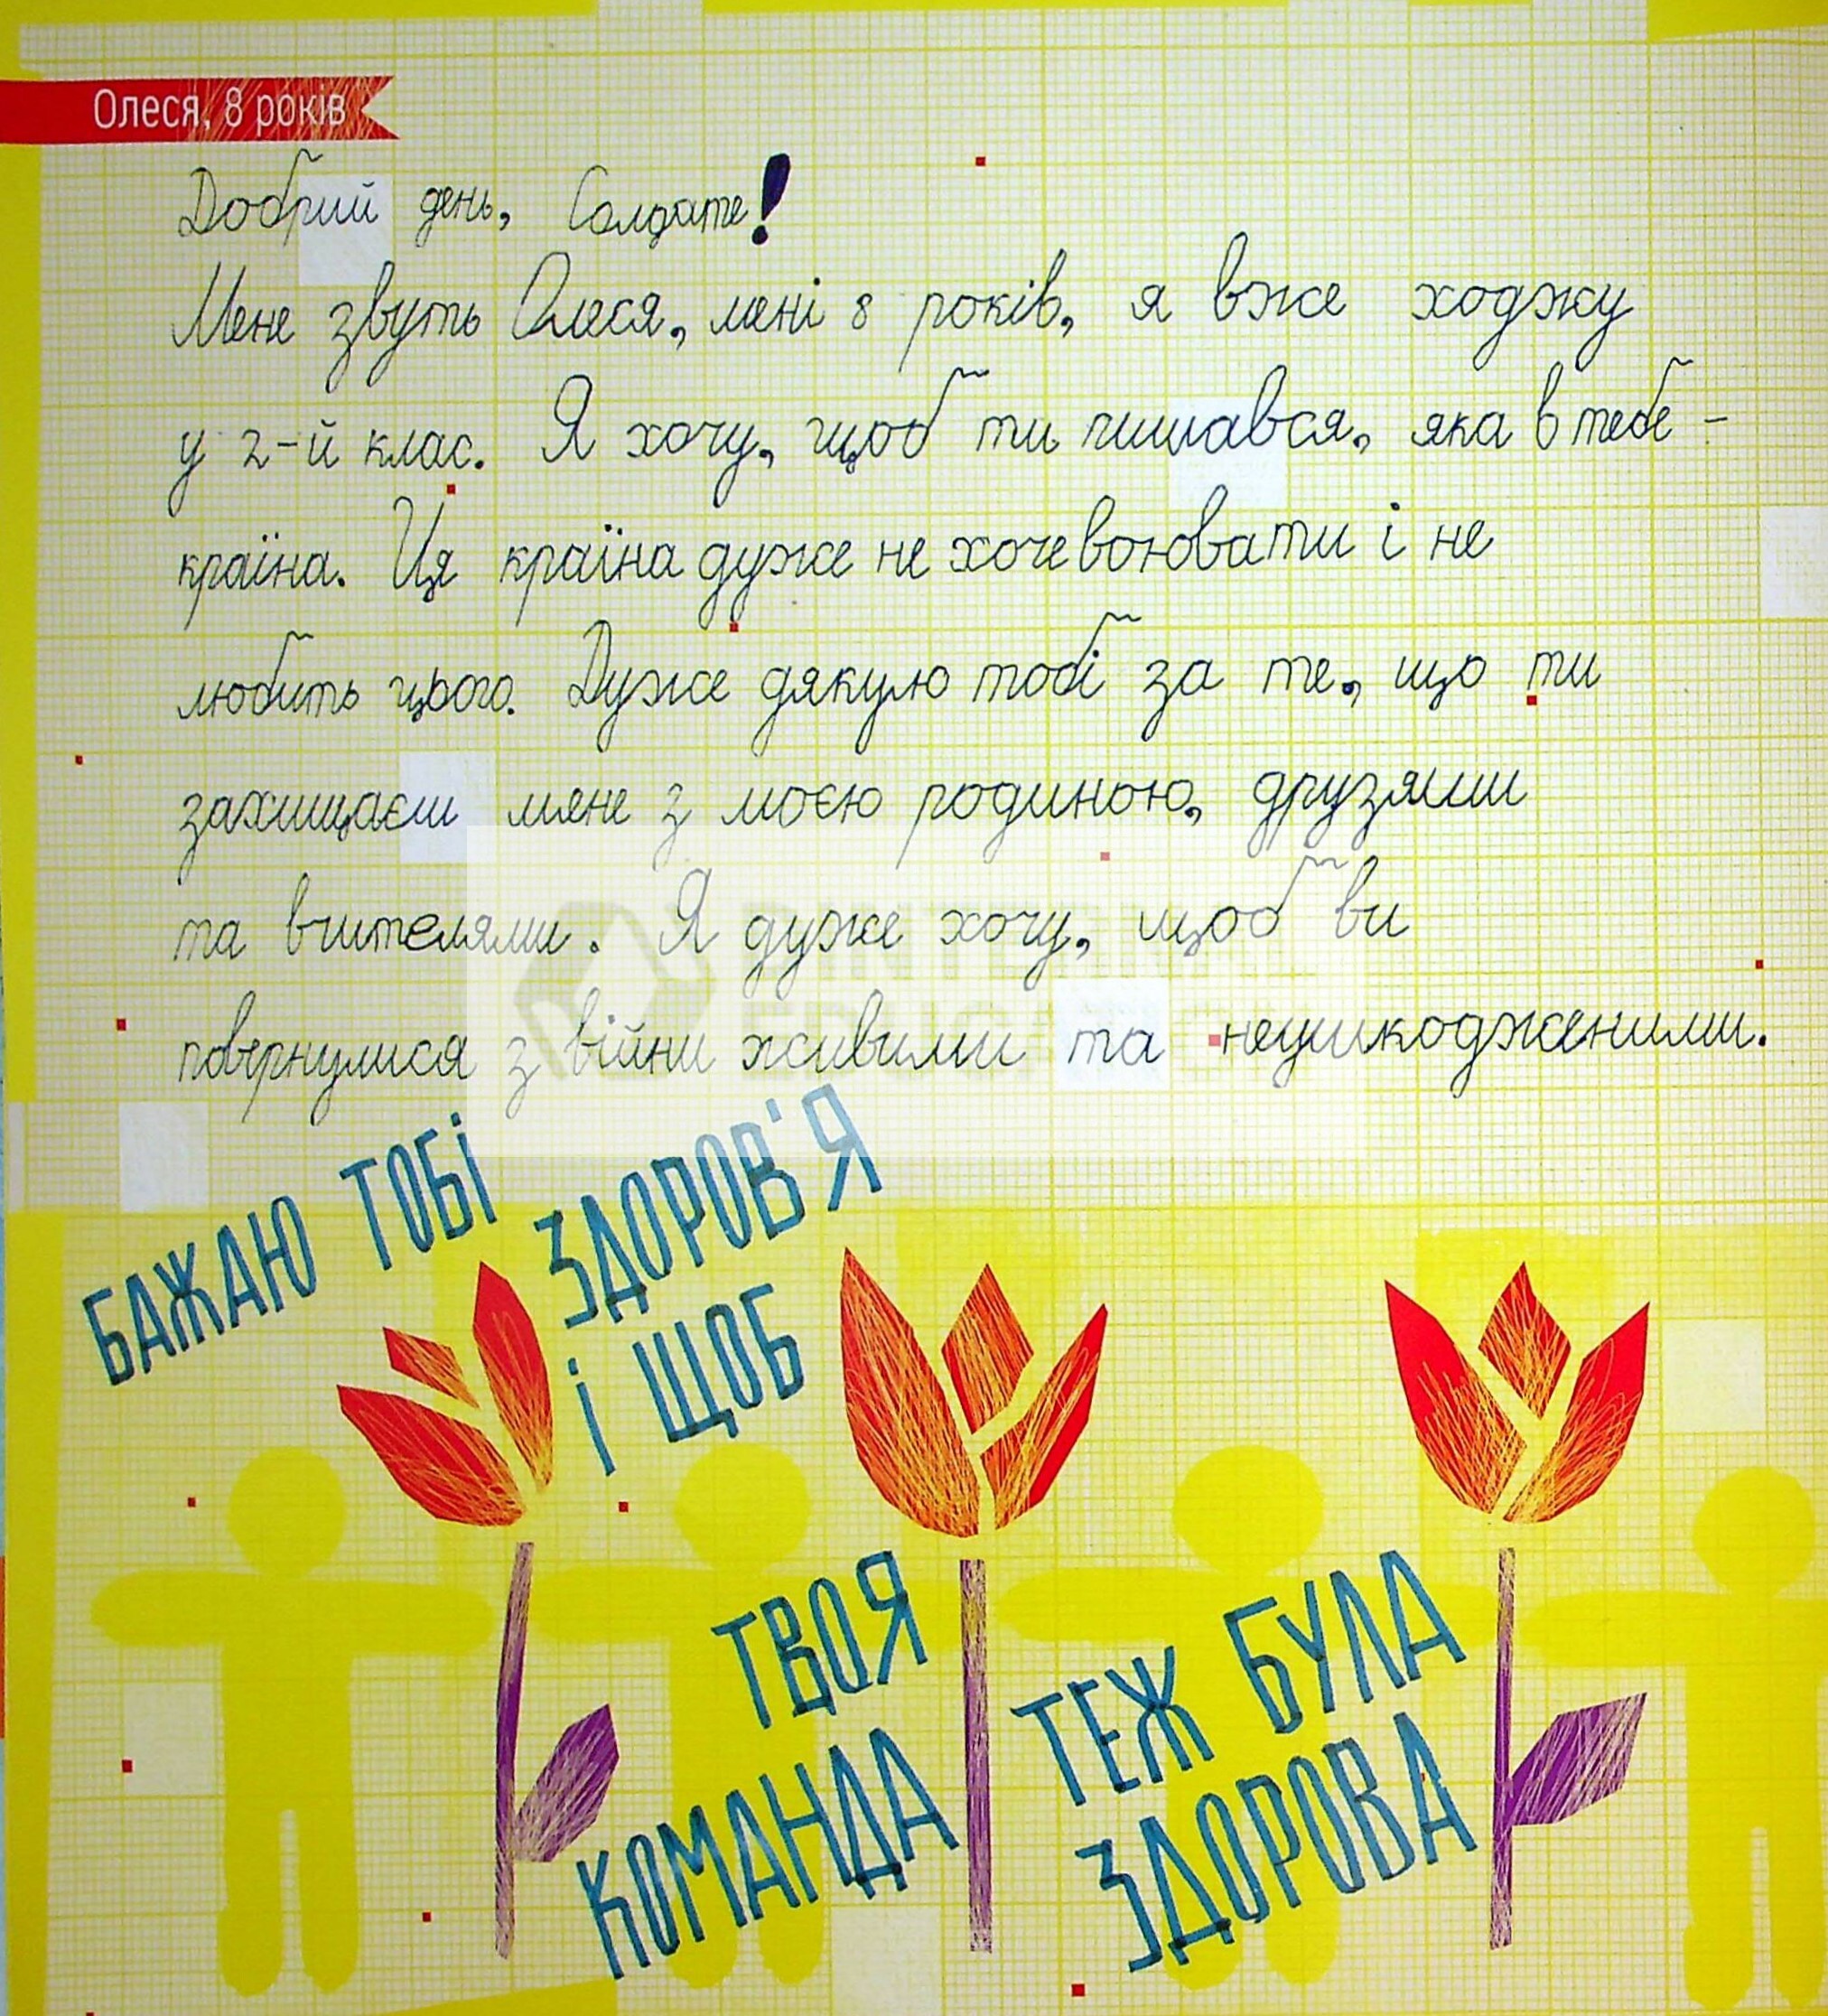 Олеся, 8 років
Добрий день, Солдате!
Мене звуть Олеся, мені 8 років, я вже ходжу
у 2-й клас. Я хочу, щоб ти пишався, яка в тебе -
країна. Ця країна дуже не хоче воювати і не
любить цього. Дуже дякую тобі за те, що ти
захищаєш мене з моєю родиною, друзями
та вчителями. Я дуже хочу, щоб ви
повернулися з війни живими та неушкодженими.
БАЖАЮ ТОБІ
ЗДОРОВ'Я
І ЩОБ
ТВОЯ
КОМАНДА
ТЕЖ БУЛА
ЗДОРОВА